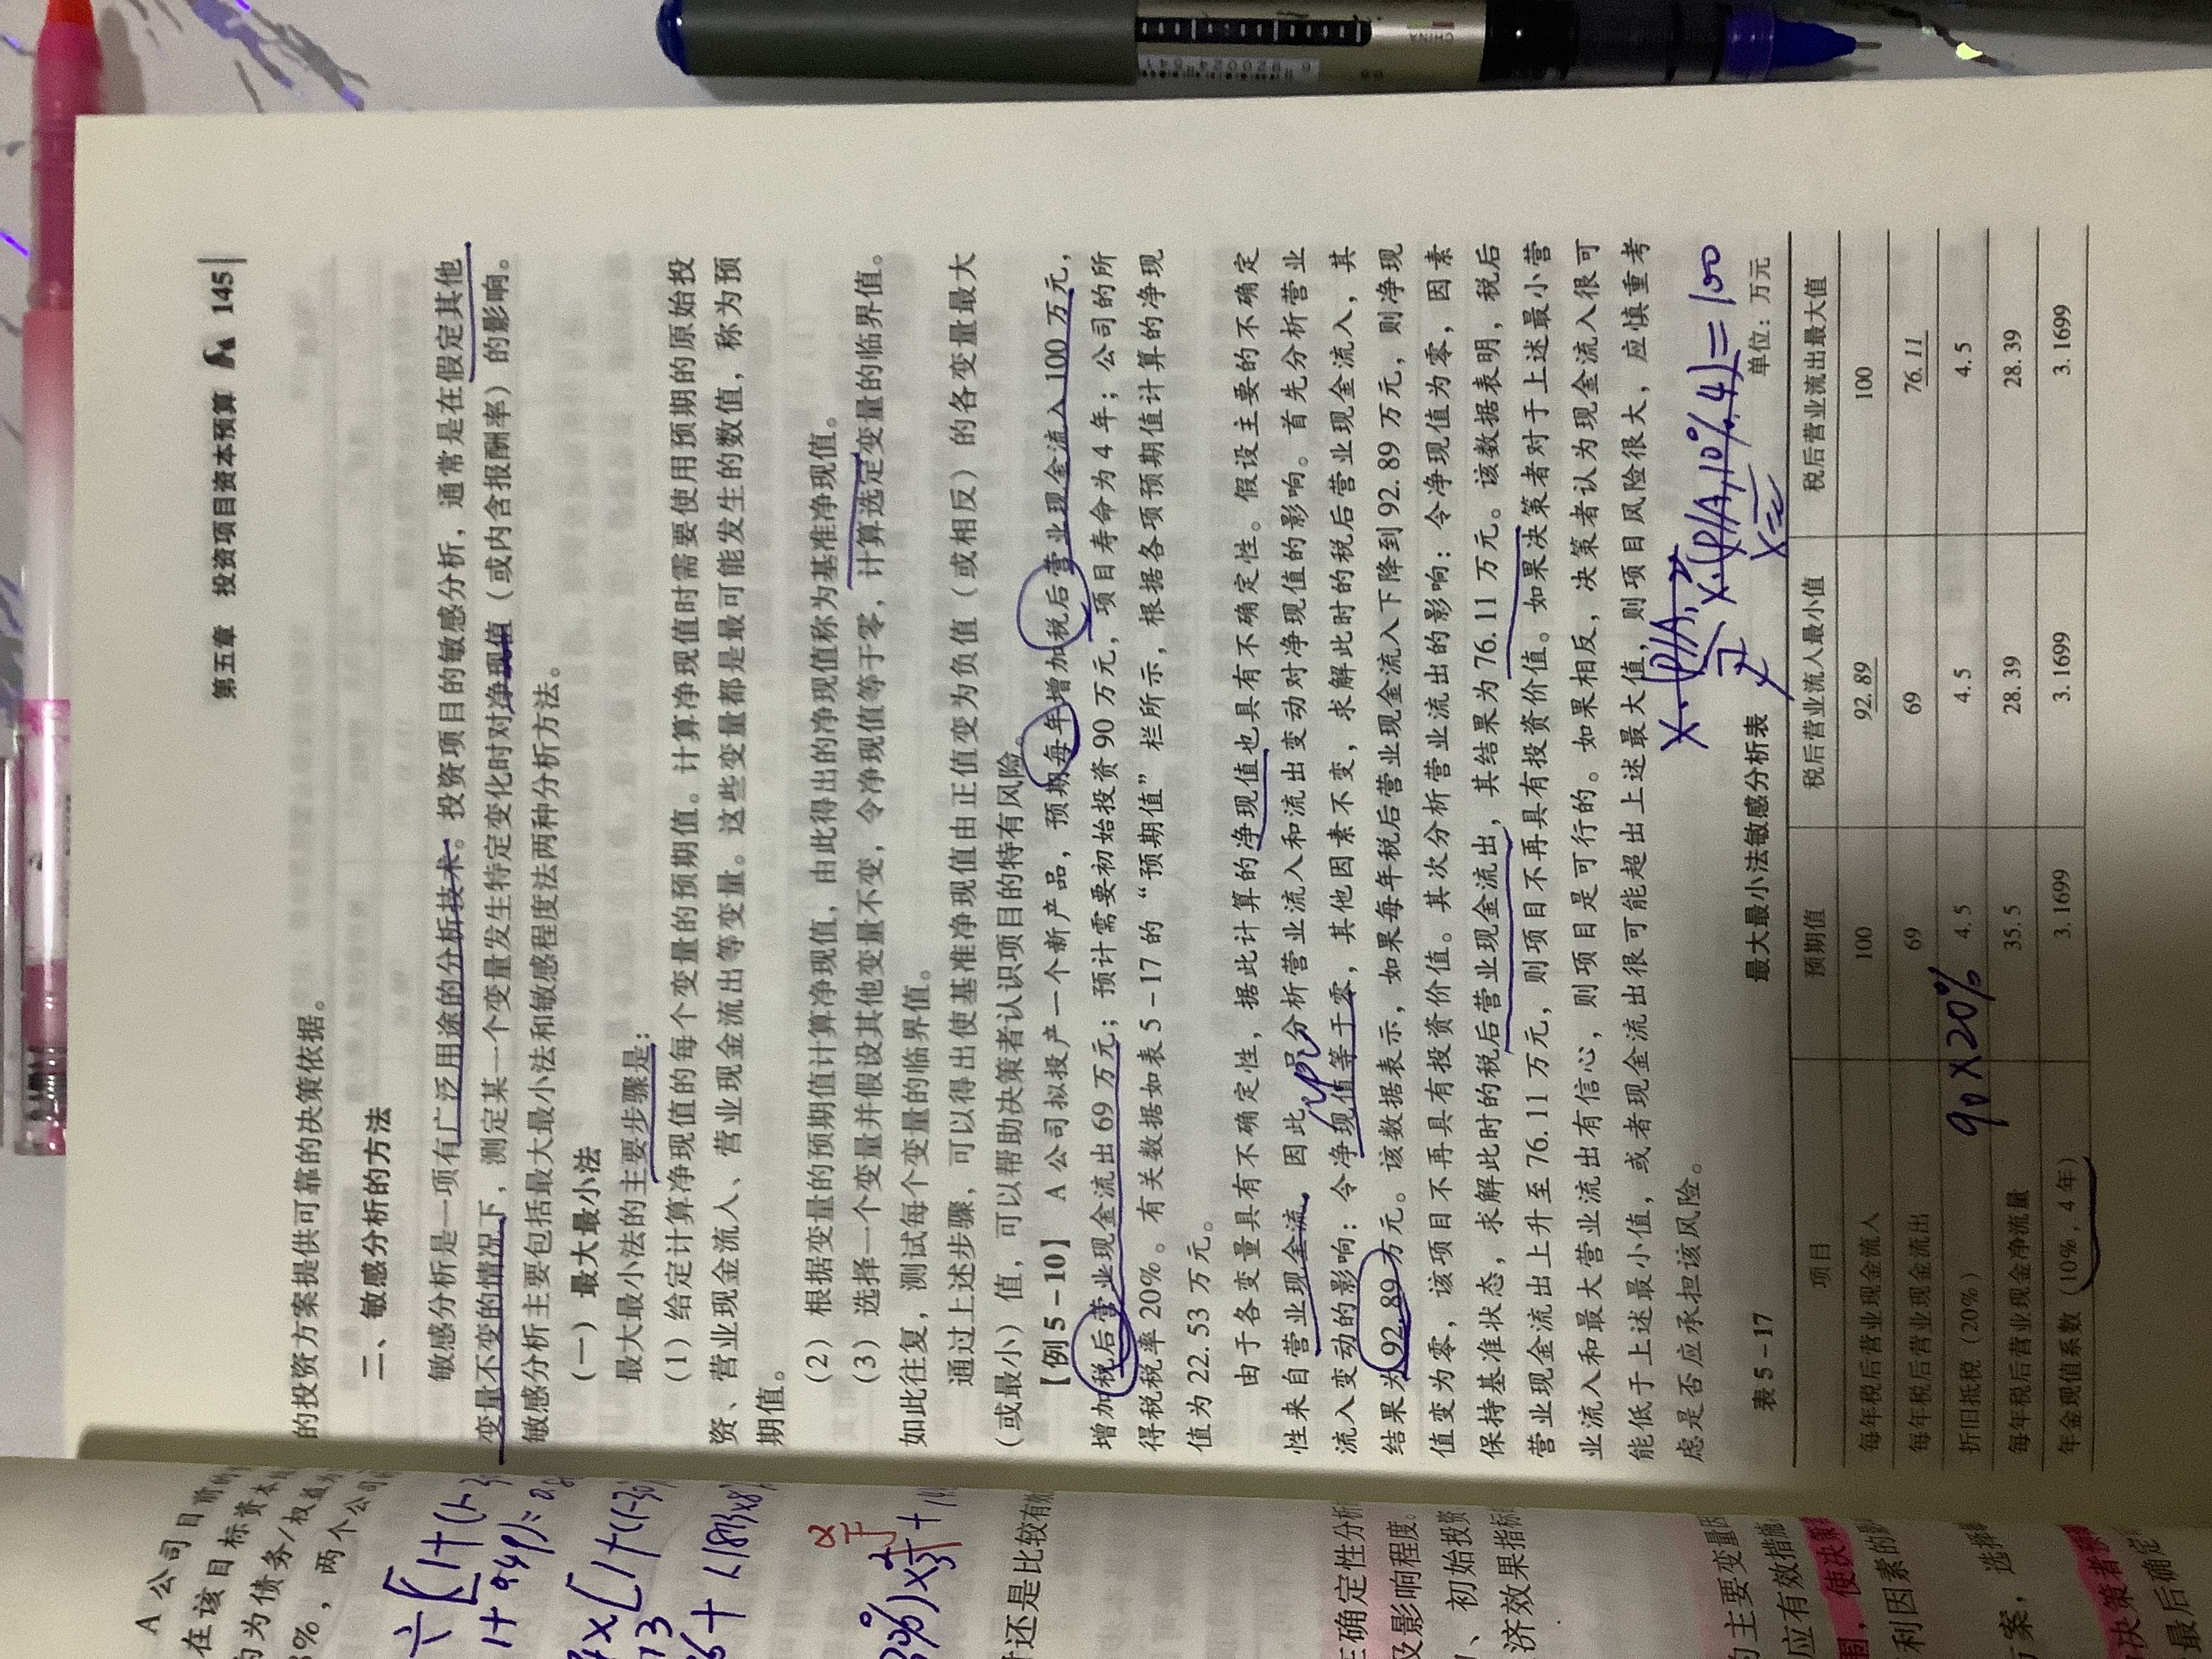 第五章 投资项目资本预算 145
的投资方案提供可靠的决策依据。
二、敏感分析的方法
敏感分析是一项有广泛用途的分析技术。投资项目的敏感分析，通常是在假定其他
变量不变的情况下，测定某一个变量发生特定变化时对净现值（或内含报酬率）的影响。
敏感分析主要包括最大最小法和敏感程度法两种分析方法。
（一）最大最小法
最大最小法的主要步骤是：
（1）给定计算净现值的每个变量的预期值。计算净现值时需要使用预期的原始投
资、营业现金流入、营业现金流出等变量。这些变量都是最可能发生的数值，称为预
期值。
（2）根据变量的预期值计算净现值，由此得出的净现值称为基准净现值。
（3）选择一个变量并假设其他变量不变，令净现值等于零，计算选定变量的临界值。
如此往复，测试每个变量的临界值。
通过上述步骤，可以得出使基准净现值由正值变为负值（或相反）的各变量最大
（或最小）值，可以帮助决策者认识项目的特有风险。
【例5-10】 A公司拟投产一个新产品，预期每年增加税后营业现金流入100万元，
增加税后营业现金流出69万元；预计需要初始投资90万元，项目寿命为4年；公司的所
得税税率20%。有关数据如表5-17的“预期值”栏所示，根据各项预期值计算的净现
值为22.53万元。
由于各变量具有不确定性，据此计算的净现值也具有不确定性。假设主要的不确定
性来自营业现金流，因此，只分析营业流入和流出变动对净现值的影响。首先分析营业
流入变动的影响：令净现值等于零，其他因素不变，求解此时的税后营业现金流入，其
结果为92.89万元。该数据表示，如果每年税后营业现金流入下降到92.89万元，则净现
值变为零，该项目不再具有投资价值。其次分析营业流出的影响：令净现值为零，因素
保持基准状态，求解此时的税后营业现金流出，其结果为76.11万元。该数据表明，税后
营业现金流出上升至76.11万元，则项目不再具有投资价值。如果决策者对于上述最小营
业流入和最大营业流出有信心，则项目是可行的。如果相反，决策者认为现金流入很可
能低于上述最小值，或者现金流出很可能超出上述最大值，则项目风险很大，应慎重考
虑是否应承担该风险。
X·(P/A,
X·(P/A,10%,4)=100
X=
表5-17 最大最小法敏感分析表 单位：万元
项目 预期值 税后营业流入最小值 税后营业流出最大值
每年税后营业现金流入 100 92.89 100
每年税后营业现金流出 69 69 76.11
90×20%
折旧抵税（20%） 4.5 4.5 4.5
每年税后营业现金净流量 35.5 28.39 28.39
年金现值系数（10%，4年） 3.1699 3.1699 3.1699
A公司目前的
在该目标资本
为债务/权益
，两个公司
还是比较有效
确定性分析
及影响程度。
、初始投资
济效果指标
的主要变量因
应有效措施
围，使决策
利因素的影
方案，选择
决策者
最后确定